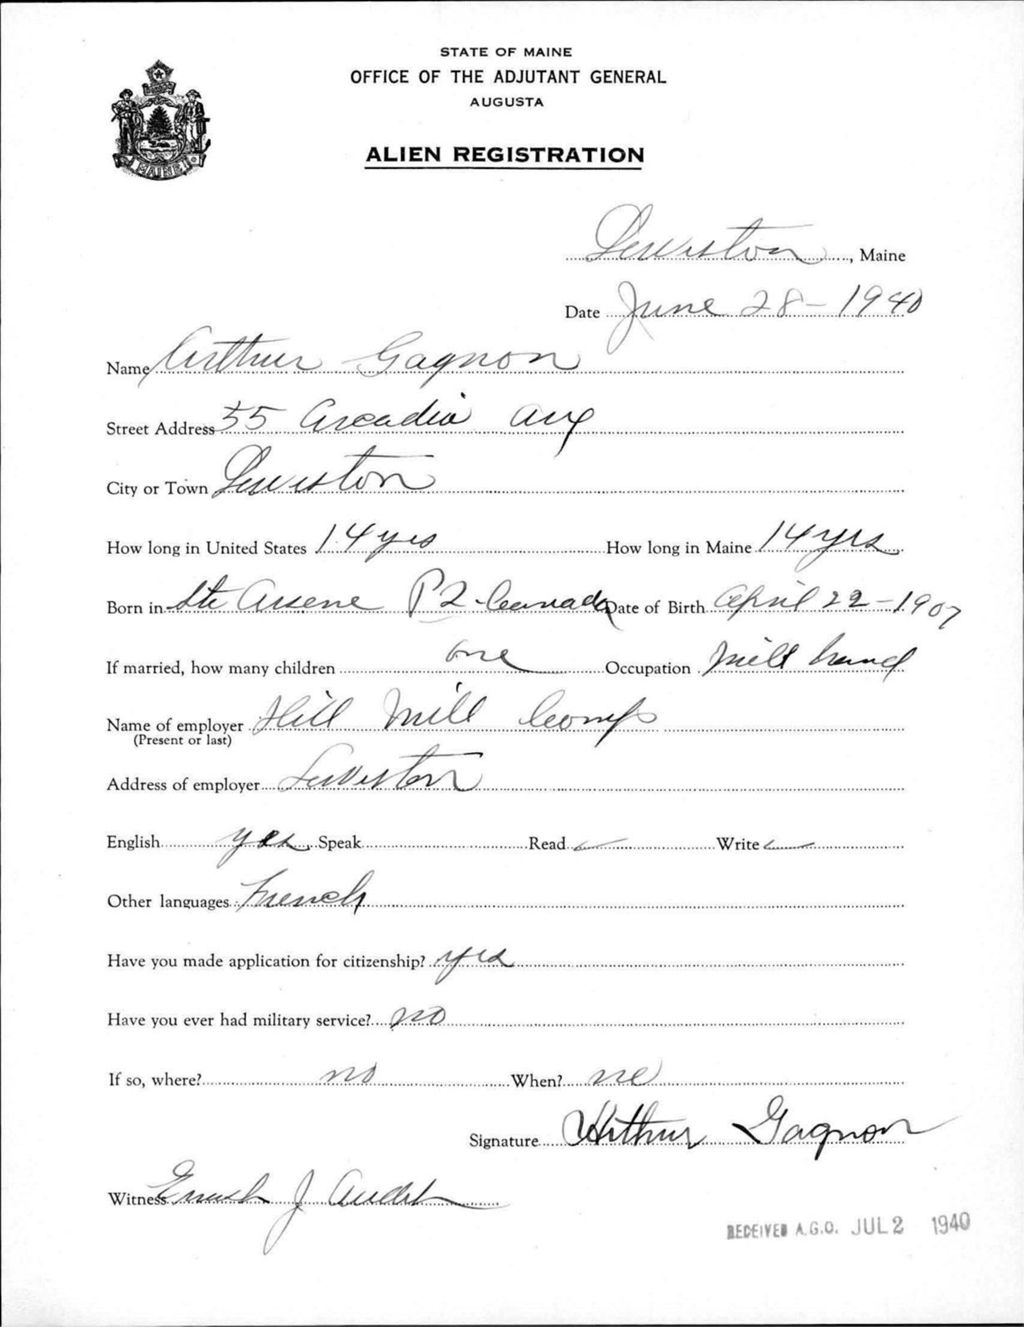 STATE OF MAINE
OFFICE OF THE ADJUTANT GENERAL
AUGUSTA
ALIEN REGISTRATION
MAINE
Lewiston, Maine
Date June 28 - 1940
Name Arthur Gagnon
Street Address 55 Arcadia Ave
City or Town Lewiston
How long in United States 14 yrs How long in Maine 14 yrs
Born in Ste Arsene P2 Canada Date of Birth April 22 - 1907
If married, how many children one Occupation Mill hand
Name of employer Hill Mill Comp
(Present or last)
Address of employer Lewiston
English yes Speak Read ✓ Write ✓
Other languages French
Have you made application for citizenship? yes
Have you ever had military service? no
If so, where? no When? no
Signature Arthur Gagnon
Witness J Audet
RECEIVED A.G.O. JUL 2 1940